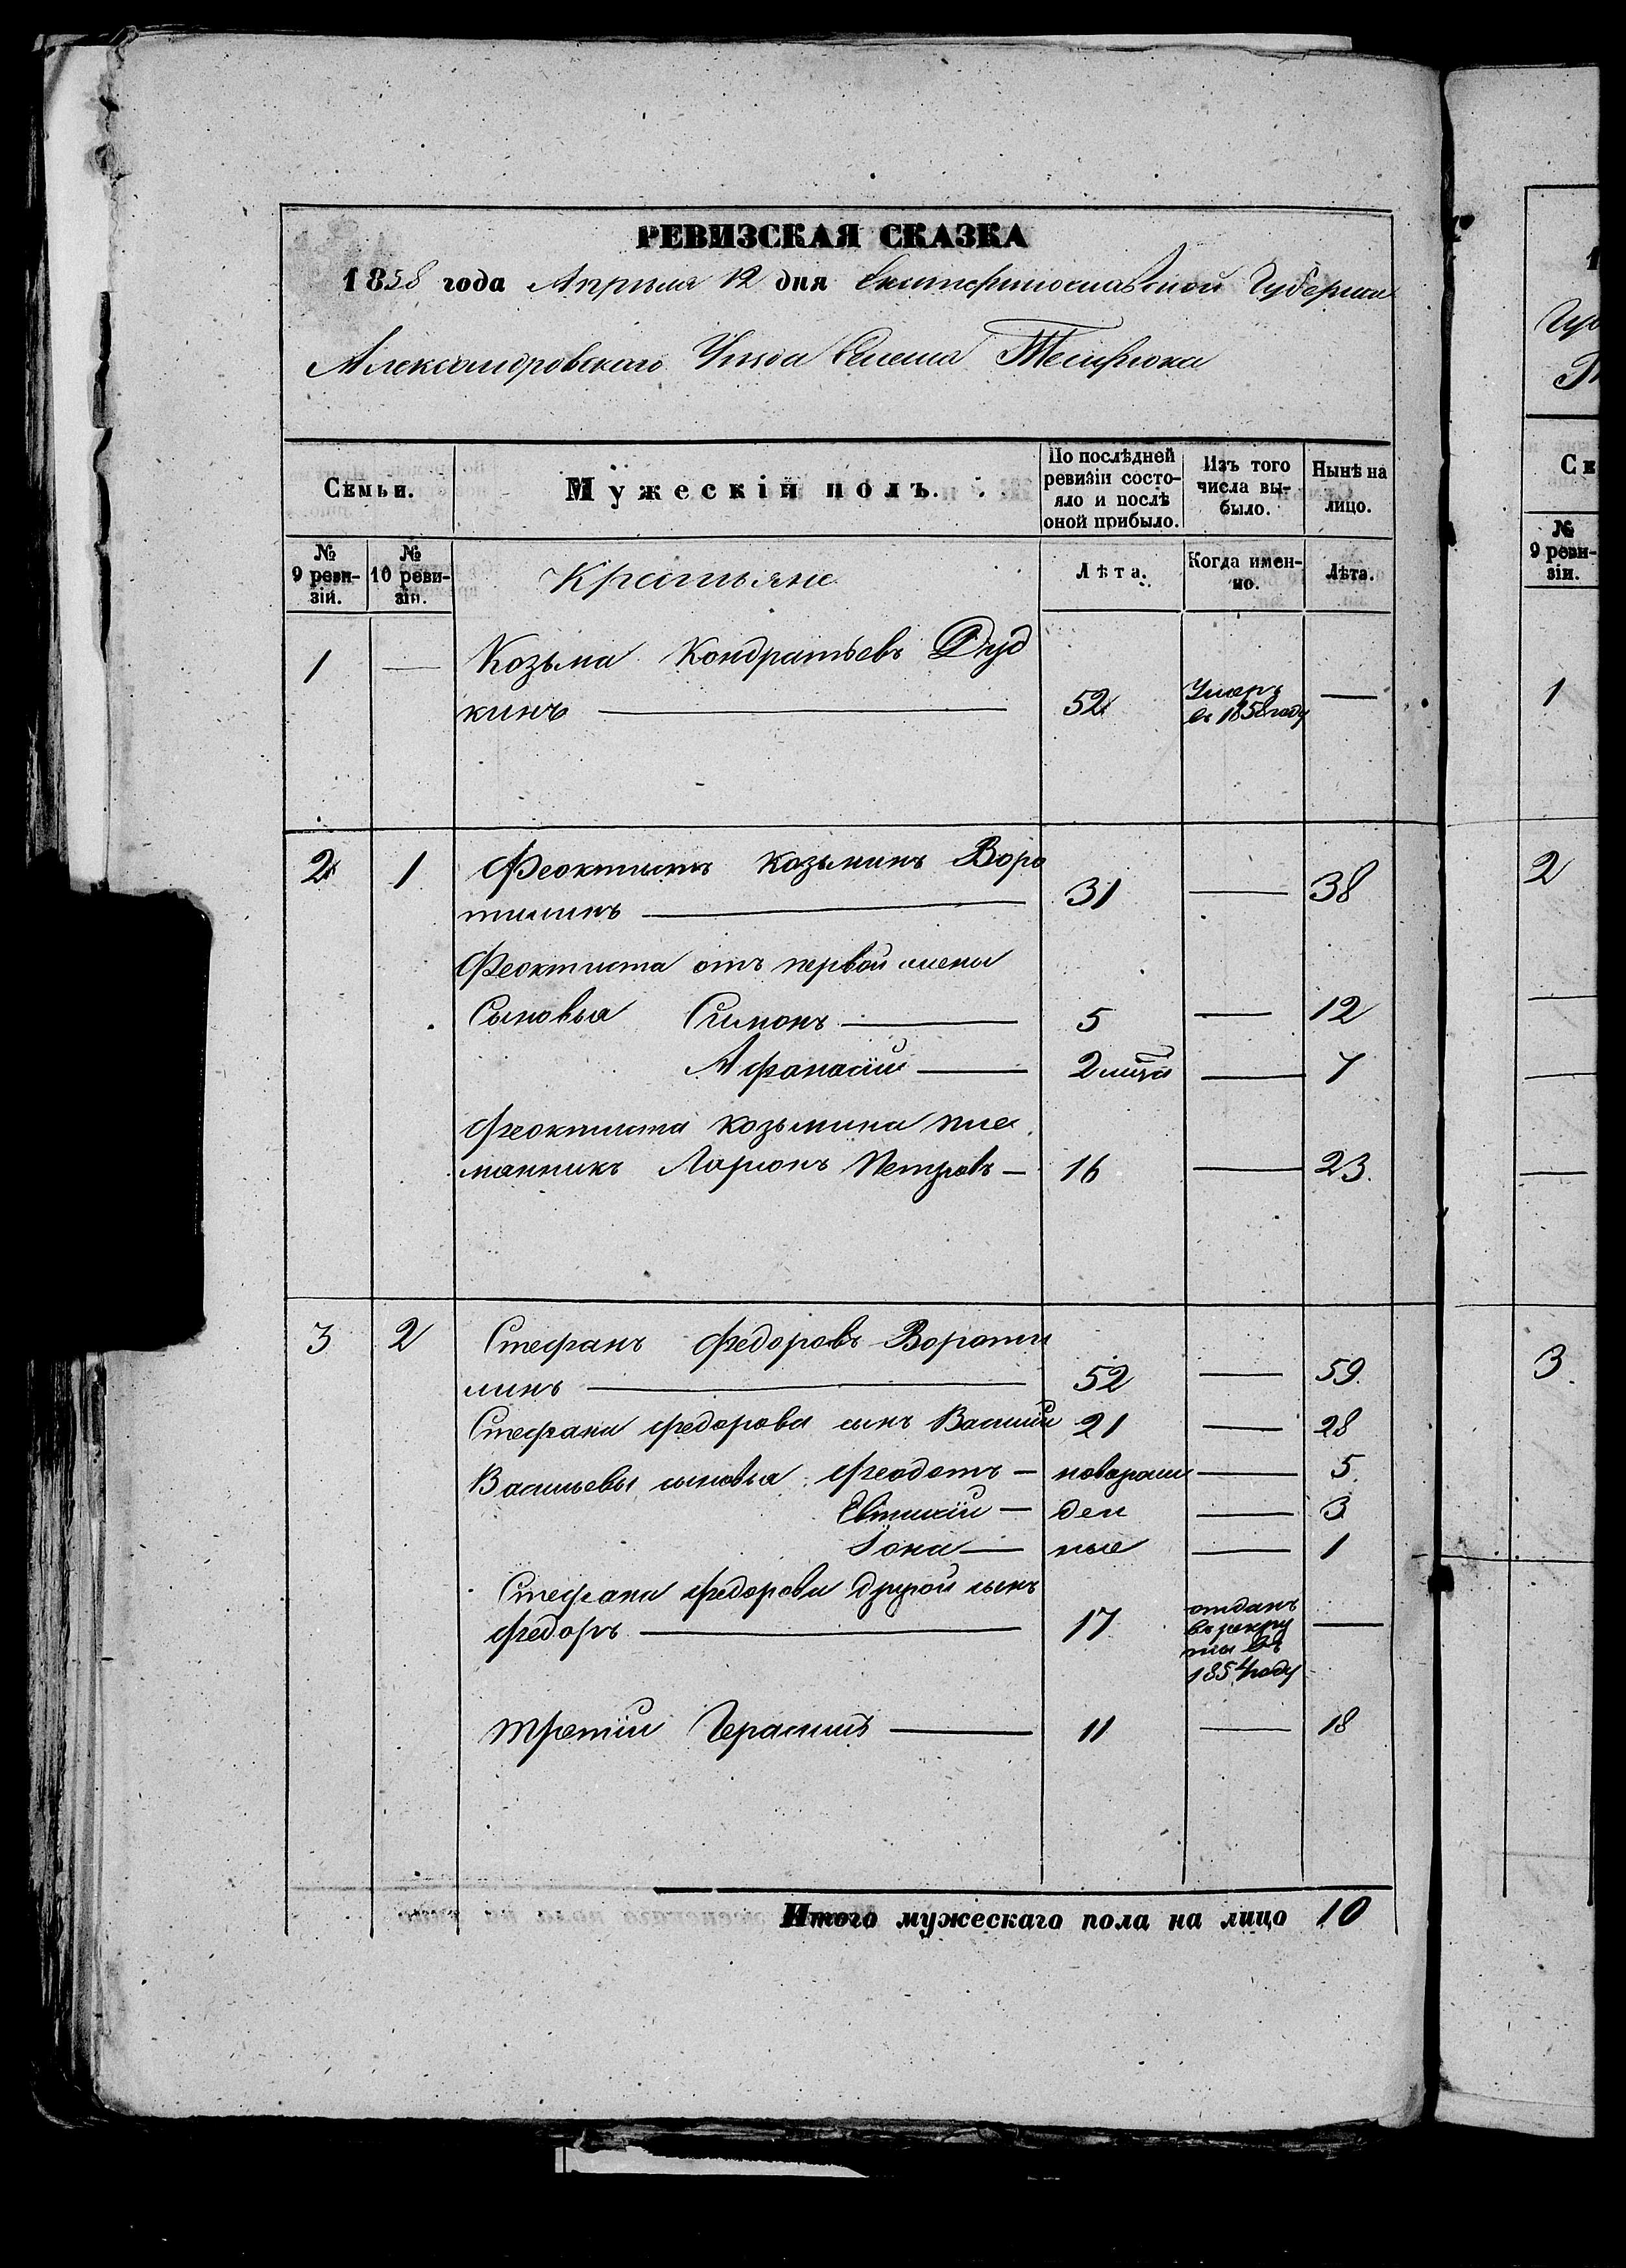 РЕВИЗСКАЯ СКАЗКА
1858 года Апрѣля 12 дня Екатеринославской Губернии
Александровскаго Уѣзда Селения Темрюка
Семьи.
Мужескій полъ.
По послѣдней ревизіи состояло и послѣ оной прибыло.
Изъ того числа выбыло.
Нынѣ на лицо.
№ 9 ревизіи.
№ 10 ревизіи.
Крестьяне
Лѣта.
Когда именно.
Лѣта.
1 — Козьма Кондратьевъ Дуд
кинъ — 52 Умеръ въ 1858 году —
2 1 Феоктистъ Козьминъ Воро
тилинъ — 31 — 38
Феоктиста отъ первой жены
Сыновья Симонъ — 5 — 12
Афанасій — 2 мѣсца — 7
Феоктиста Козьмина пле
мянникъ Ларионъ Петровъ — 16 — 23.
3 2 Стефанъ Федоровъ Вороти
линъ — 52 — 59.
Стефана Федорова сынъ Василій 21 — 28
Васильевы сыновья Феодотъ — новорож — 5.
Евтихій — ден — 3
Іона — ные — 1
Стефана Федорова другой сынъ
Федоръ — 17 отданъ въ рекруты въ 1854 году —
третій Герасимъ — 11 — 18
Итого мужескаго пола на лицо 10
С
№ 9 ревизіи.
1
2
3.